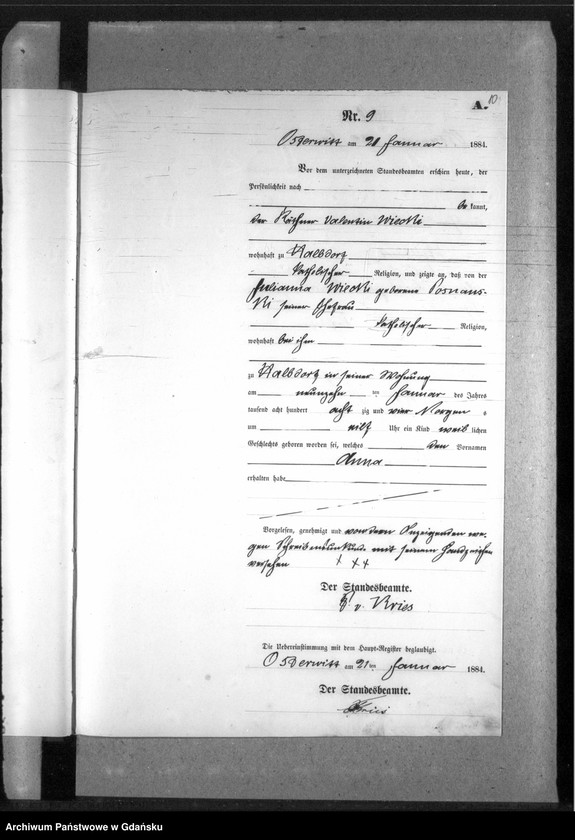 A. 10
Nr. 9
Osterwitt am 21 Januar 1884.
Vor dem unterzeichneten Standesbeamten erschien heute, der
Persönlichkeit nach
be kannt,
der Käthner Valentin Wiecki
wohnhaft zu Kalbdorf
katholischer Religion, und zeigte an, daß von der
Julianna Wiecki geborene Posnans-
ki seiner Ehefrau
katholischer Religion,
wohnhaft bei ihm
zu Kalbdorf in seiner Wohnung
am neunzehn ten Januar des Jahres
tausend acht hundert acht zig und vier Morgens
um eilf Uhr ein Kind weib lichen
Geschlechts geboren worden sei, welches den Vornamen
Anna
erhalten habe
Vorgelesen, genehmigt und von dem Anzeigenden we-
gen Schreibensunkunde mit seinem Handzeichen
versehen + + +
Der Standesbeamte.
v. Kries
Die Uebereinstimmung mit dem Haupt-Register beglaubigt.
Osterwitt am 21ten Januar 1884.
Der Standesbeamte.
Kries
Archiwum Państwowe w Gdańsku